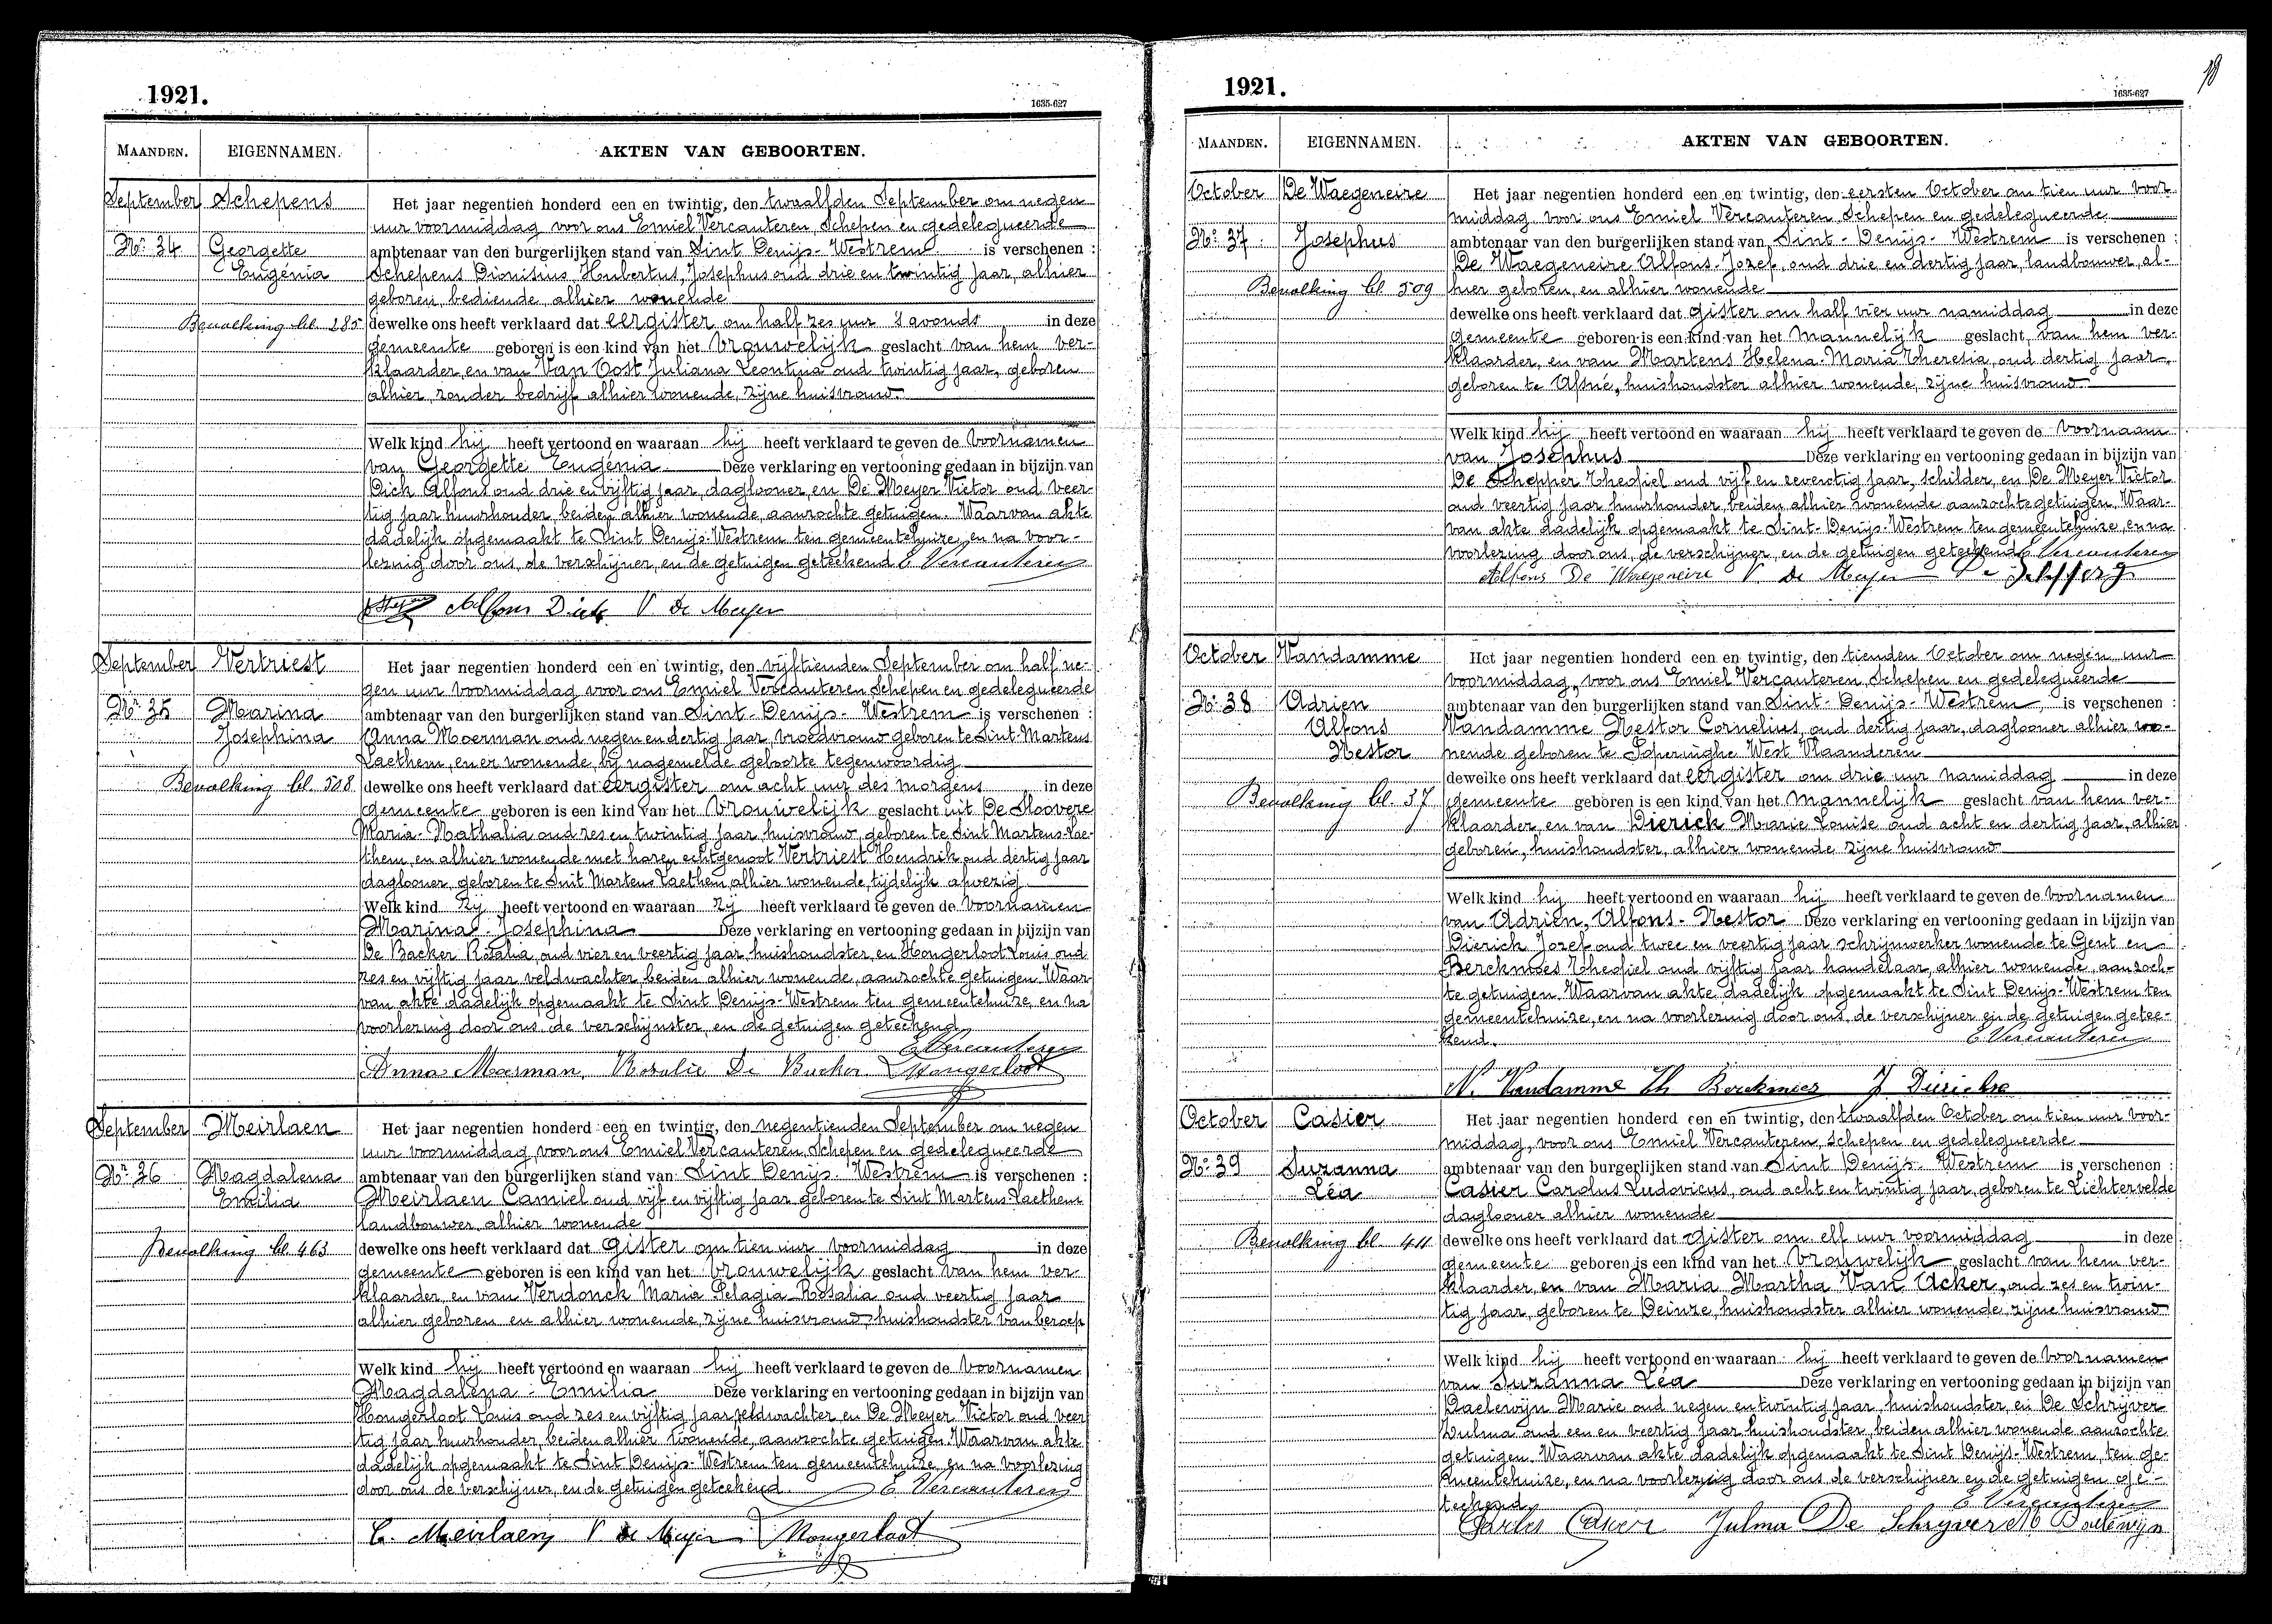 1921.
1635-627
MAANDEN. EIGENNAMEN. AKTEN VAN GEBOORTEN.
September Schepens Het jaar negentien honderd een en twintig, den twaalfden September om negen
uur voormiddag voor ons Emiel Vercauteren, Schepen en gedelegueerde
Nr 34 Georgette ambtenaar van den burgerlijken stand van Sint Denijs-Westrem is verschenen :
Eugénia Schepens Dionisius, Hubertus, Josephus oud drie en twintig jaar, alhier
geboren, bediende, alhier wonende
Bevolking bl. 285 dewelke ons heeft verklaard dat eergister om half zes uur 's avonds in deze
gemeente geboren is een kind van het vrouwelijk geslacht van hem ver-
klaarder, en van Van Oost Juliana Leontina oud twintig jaar, geboren
alhier, zonder bedrijf alhier wonende, zijne huisvrouw.
Welk kind hij heeft vertoond en waaraan hij heeft verklaard te geven de voornamen
van Georgette Eugénia Deze verklaring en vertooning gedaan in bijzijn van
Dick Alfons oud drie en vijftig jaar, daglooner, en De Meyer Victor oud veer-
tig jaar huurhouder, beiden alhier wonende, aanzochte getuigen. Waarvan akte
dadelijk opgemaakt te Sint Denijs-Westrem ten gemeentehuize, en na voor-
lezing door ons, de verschijner, en de getuigen geteekend E Vercauteren
Alfons Dick V de Meyer
September Vertriest Het jaar negentien honderd een en twintig, den vijftienden September om half ne-
gen uur voormiddag voor ons Emiel Vercauteren Schepen en gedelegueerde
Nr 35 Marina ambtenaar van den burgerlijken stand van Sint-Denijs-Westrem is verschenen :
Josephina Anna Moerman oud negen en dertig jaar, vroedvrouw geboren te Sint-Martens
Laethem, en er wonende, bij nagemelde geboorte tegenwoordig
Bevolking bl. 508 dewelke ons heeft verklaard dat eergister om acht uur des morgens in deze
gemeente geboren is een kind van het vrouwelijk geslacht uit De Sloovere
Maria-Nathalia oud zes en twintig jaar huisvrouw, geboren te Sint Martens-Lae-
them, en alhier wonende met haren echtgenoot Vertriest Hendrik oud dertig jaar
daglooner, geboren te Sint Martens Laethem, alhier wonende, tijdelijk afwezig
Welk kind zij heeft vertoond en waaraan zij heeft verklaard te geven de voornamen
Marina-Josephina Deze verklaring en vertooning gedaan in bijzijn van
De Backer Rosalia, oud vier en veertig jaar, huishoudster, en Hongerloot Louis oud
zes en vijftig jaar veldwachter, beiden alhier wonende, aanzochte getuigen. Waar-
van akte dadelijk opgemaakt te Sint Denijs-Westrem ten gemeentehuize, en na
voorlezing door ons, de verschijnster, en de getuigen geteekend
E Vercauteren
Anna Moerman, Rosalie De Backer L Hongerloot
September Meirlaen Het jaar negentien honderd een en twintig, den negentienden September om negen
uur voormiddag, voor ons Emiel Vercauteren, Schepen en gedelegueerde
Nr 36 Magdalena ambtenaar van den burgerlijken stand van Sint Denijs-Westrem is verschenen :
Emilia Meirlaen Camiel oud vijf en vijftig jaar geboren te Sint Martens-Laethem
landbouwer, alhier wonende
Bevolking bl. 463 dewelke ons heeft verklaard dat gister om tien uur voormiddag in deze
gemeente geboren is een kind van het vrouwelijk geslacht van hem ver
klaarder, en van Verdonck Maria Pelagia-Rosalia oud veertig jaar
alhier geboren en alhier wonende, zijne huisvrouw, huishoudster van beroep
Welk kind hij heeft vertoond en waaraan hij heeft verklaard te geven de voornamen
Magdalena-Emilia Deze verklaring en vertooning gedaan in bijzijn van
Hongerloot Louis oud zes en vijftig jaar, veldwachter en De Meyer Victor oud veer
tig jaar huurhouder, beiden alhier wonende, aanzochte getuigen. Waarvan akte
dadelijk opgemaakt te Sint Denijs-Westrem ten gemeentehuize, en na voorlezing
door ons de verschijner, en de getuigen geteekend. E Vercauteren
C. Meirlaen V de Meyer L Hongerloot
18
1921.
1635-627
MAANDEN. EIGENNAMEN. AKTEN VAN GEBOORTEN.
October De Waegeneire Het jaar negentien honderd een en twintig, den eersten October om tien uur voor
middag, voor ons Emiel Vercauteren Schepen en gedelegueerde
No 37 Josephus ambtenaar van den burgerlijken stand van Sint-Denijs-Westrem is verschenen :
De Waegeneire Alfons-Jozef, oud drie en dertig jaar, landbouwer, al-
Bevolking bl. 509 hier geboren, en alhier wonende
dewelke ons heeft verklaard dat gister om half vier uur namiddag in deze
gemeente geboren is een kind van het mannelijk geslacht, van hem ver-
klaarder, en van Martens Helena-Maria Theresia, oud dertig jaar,
geboren te Afsné, huishoudster alhier wonende, zijne huisvrouw
Welk kind hij heeft vertoond en waaraan hij heeft verklaard te geven de voornaam
van Josephus Deze verklaring en vertooning gedaan in bijzijn van
De Schepper Theofiel oud vijf en zeventig jaar, schilder, en De Meyer Victor
oud veertig jaar huurhouder beiden alhier wonende aanzochte getuigen. Waar-
van akte dadelijk opgemaakt te Sint-Denijs-Westrem ten gemeentehuize, en na
voorlezing door ons, de verschijner, en de getuigen geteekend E Vercauteren
Alfons De Waegeneire V de Meyer
October Vandamme Het jaar negentien honderd een en twintig, den tienden October om negen uur
voormiddag, voor ons Emiel Vercauteren, Schepen en gedelegueerde
No 38 Adrien ambtenaar van den burgerlijken stand van Sint-Denijs-Westrem, is verschenen :
Alfons Vandamme Nestor Cornelius, oud dertig jaar, daglooner alhier wo-
Nestor nende geboren te Poperinghe West Vlaanderen
dewelke ons heeft verklaard dat eergister om drie uur namiddag in deze
Bevolking bl. 37 gemeente geboren is een kind van het mannelijk geslacht van hem ver-
klaarder, en van Dierick Marie Louise oud acht en dertig jaar, alhier
geboren, huishoudster, alhier wonende zijne huisvrouw
Welk kind hij heeft vertoond en waaraan hij heeft verklaard te geven de voornamen
van Adrien, Alfons-Nestor Deze verklaring en vertooning gedaan in bijzijn van
Dierick Jozef oud twee en veertig jaar schrijnwerker wonende te Gent en
Berckmoes Theofiel oud vijftig jaar handelaar, alhier wonende, aanzoch-
te getuigen. Waarvan akte dadelijk opgemaakt te Sint Denijs-Westrem ten
gemeentehuize, en na voorlezing door ons, de verschijner en de getuigen getee-
kend. E Vercauteren
N. Vandamme Th Berckmoes J Dierickx
October Casier Het jaar negentien honderd een en twintig, den twaalfden October om tien uur voor-
middag, voor ons Emiel Vercauteren, Schepen en gedelegueerde
No 39 Suzanna ambtenaar van den burgerlijken stand van Sint Denijs-Westrem is verschenen :
Léa Casier Carolus Ludovicus, oud acht en twintig jaar, geboren te Lichtervelde
daglooner alhier wonende
Bevolking bl. 411 dewelke ons heeft verklaard dat gister om elf uur voormiddag in deze
gemeente geboren is een kind van het vrouwelijk geslacht van hem ver-
klaarder, en van Maria Martha Van Acker, oud zes en twin-
tig jaar, geboren te Deinze, huishoudster alhier wonende, zijne huisvrouw
Welk kind hij heeft vertoond en waaraan hij heeft verklaard te geven de voornamen
van Suzanna Léa Deze verklaring en vertooning gedaan in bijzijn van
Baelewijn Marie oud negen en twintig jaar, huishoudster, en De Schrijver
Julma oud een en veertig jaar huishoudster, beiden alhier wonende aanzochte
getuigen. Waarvan akte dadelijk opgemaakt te Sint Denijs-Westrem, ten ge-
meentehuize, en na voorlezing door ons de verschijner en de getuigen ge-
teekend E Vercauteren
Carles Casier Julma De Schryver M Baelewijn